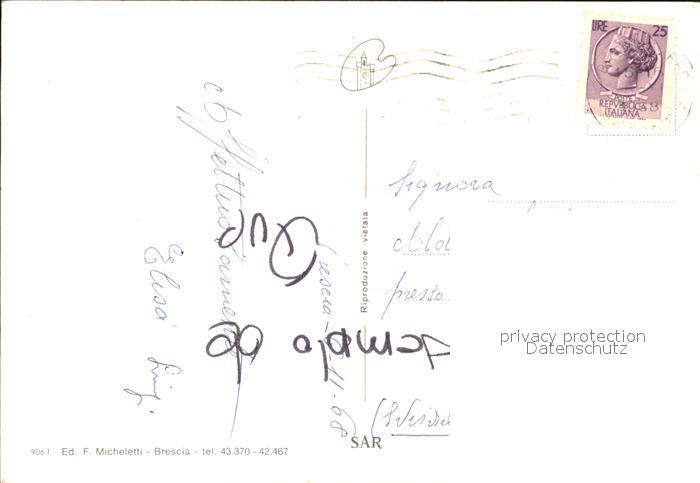 LIRE 25
REPVBBLICA
ITALIANA
Affettuosamente
Elisa Luigi
Brescia - 11-68
Signora
presso
privacy protection
Datenschutz
Riproduzione vietata
SAR
9061 Ed. F. Micheletti - Brescia - tel. 43.370 - 42.467